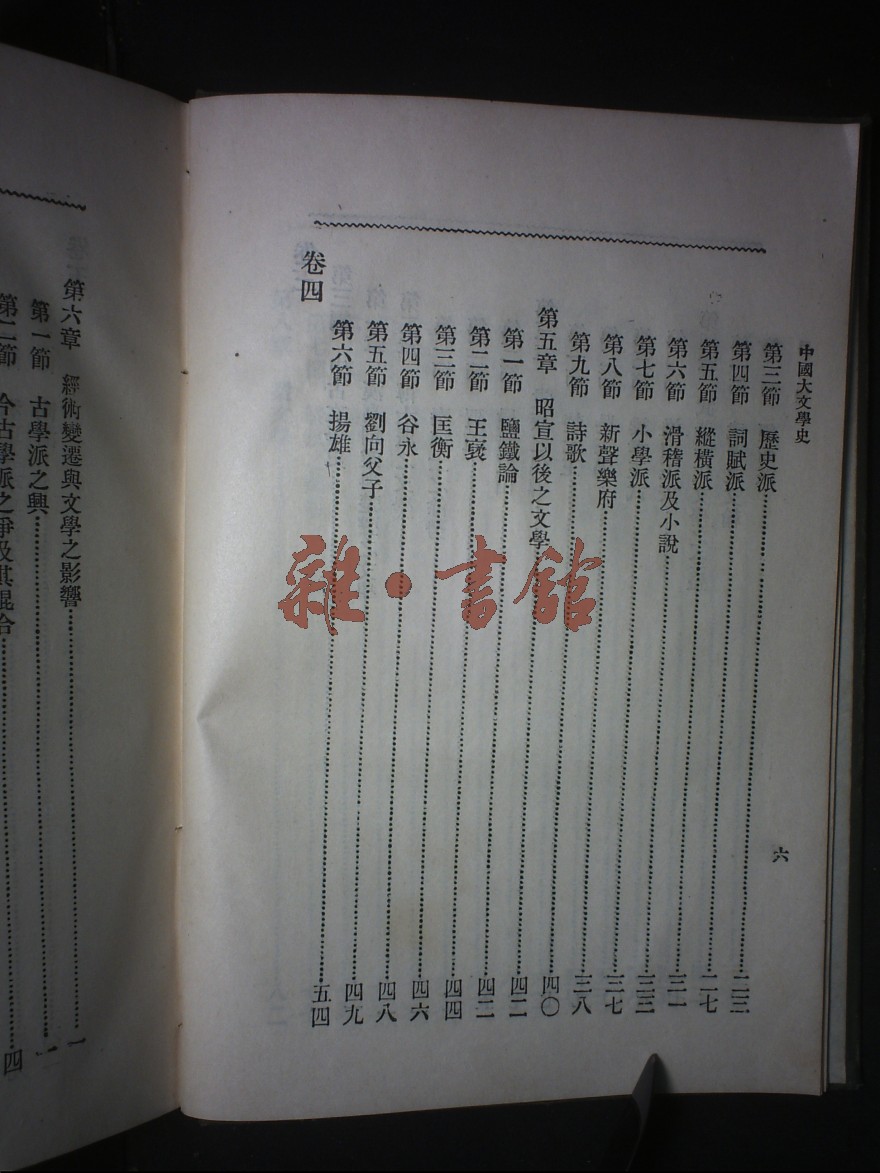 中國大文學史
六
第三節 歷史派 二三
第四節 詞賦派 二七
第五節 縱橫派 三一
第六節 滑稽派及小說 三三
第七節 小學派 三七
第八節 新聲樂府 三八
第九節 詩歌 四〇
第五章 昭宣以後之文學 四二
第一節 鹽鐵論 四二
第二節 王襃 四四
第三節 匡衡 四六
第四節 谷永 四八
第五節 劉向父子 四九
第六節 揚雄 五四
卷四
第六章 經術變遷與文學之影響 一
第一節 古學派之興 一
第二節 今古學派之爭及其混合 四
雜·書館